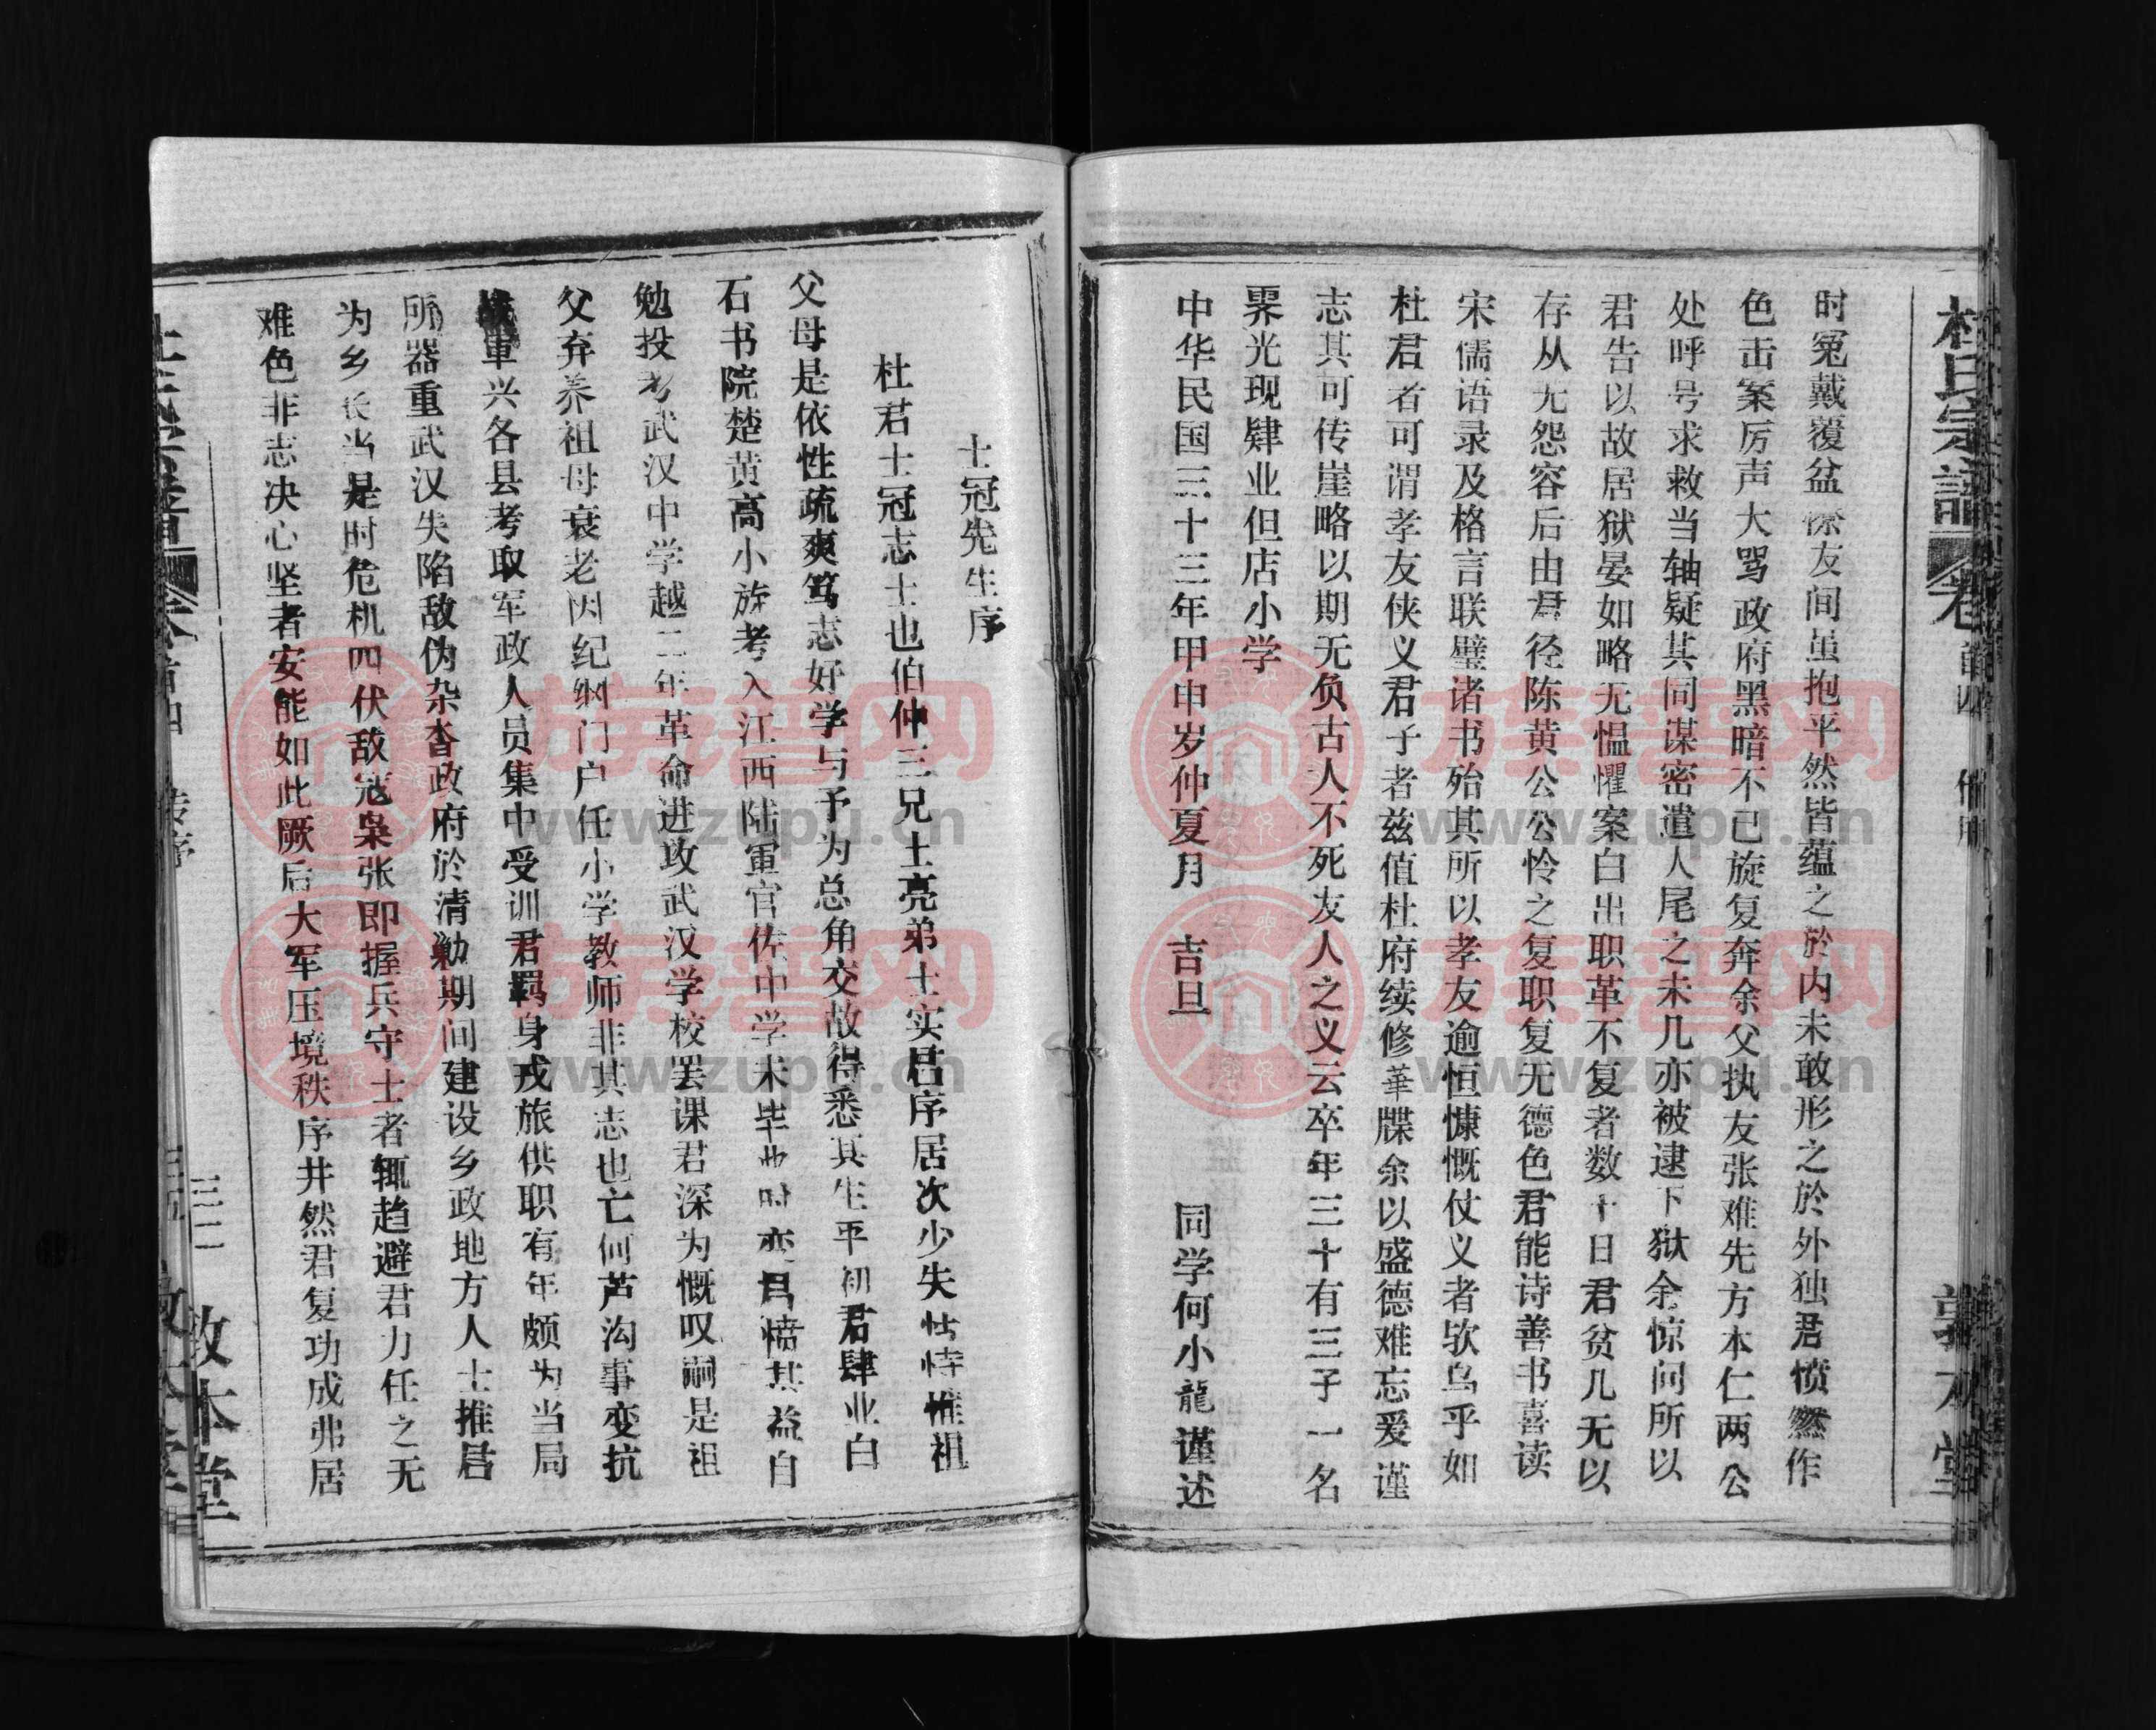 杜氏宗譜 卷首四
时冤戴覆盆 友间虽抱平然皆蕴之於内未敢形之於外独君愤然作
色击案厉声大骂政府黑暗不已旋复奔余父执友张难先方本仁两公
处呼号求救当轴疑其同谋密遣人尾之未几亦被逮下狱余惊问所以
君告以故居狱晏如略无愠惧案白出职革不复者数十日君贫几无以
存从无怨容后由君径陈黄公公怜之复职复无德色君能诗善书喜读
宋儒语录及格言联璧诸书殆其所以孝友逾恒慷慨仗义者欤乌乎如
杜君者可谓孝友侠义君子者兹值杜府续修華牒余以盛德难忘爰谨
志其可传崖略以期无负古人不死友人之义云卒年三十有三子一名
霁光现肄业但店小学
中华民国三十三年甲申岁仲夏月 吉旦 同学何小龍谨述
士冠先生序
杜君士冠志士也伯仲三兄士亮弟士实君序居次少失怙恃惟祖
父母是依性疏爽笃志好学与予为总角交故得悉其生平初君肆业白
石书院楚黄高小旋考入江西陆軍官佐中学未毕业时变君愤其益自
勉投考武汉中学越二年革命进攻武汉学校罢课君深为慨叹嗣是祖
父弃养祖母衰老因纪纲门户任小学教师非其志也亡何芦沟事变抗
軍兴各县考取军政人员集中受训君羁身戎旅供职有年颇为当局
所器重武汉失陷敌伪杂沓政府於清勦期间建设乡政地方人士推君
为乡长当是时危机四伏敌寇枭张即握兵守士者辄趋避君力任之无
难色非志决心坚者安能如此厥后大军压境秩序井然君复功成弗居
三二 敦本堂
族谱网
www.zupu.cn
族谱网
www.zupu.cn
族谱网
www.zupu.cn
族谱网
www.zupu.cn